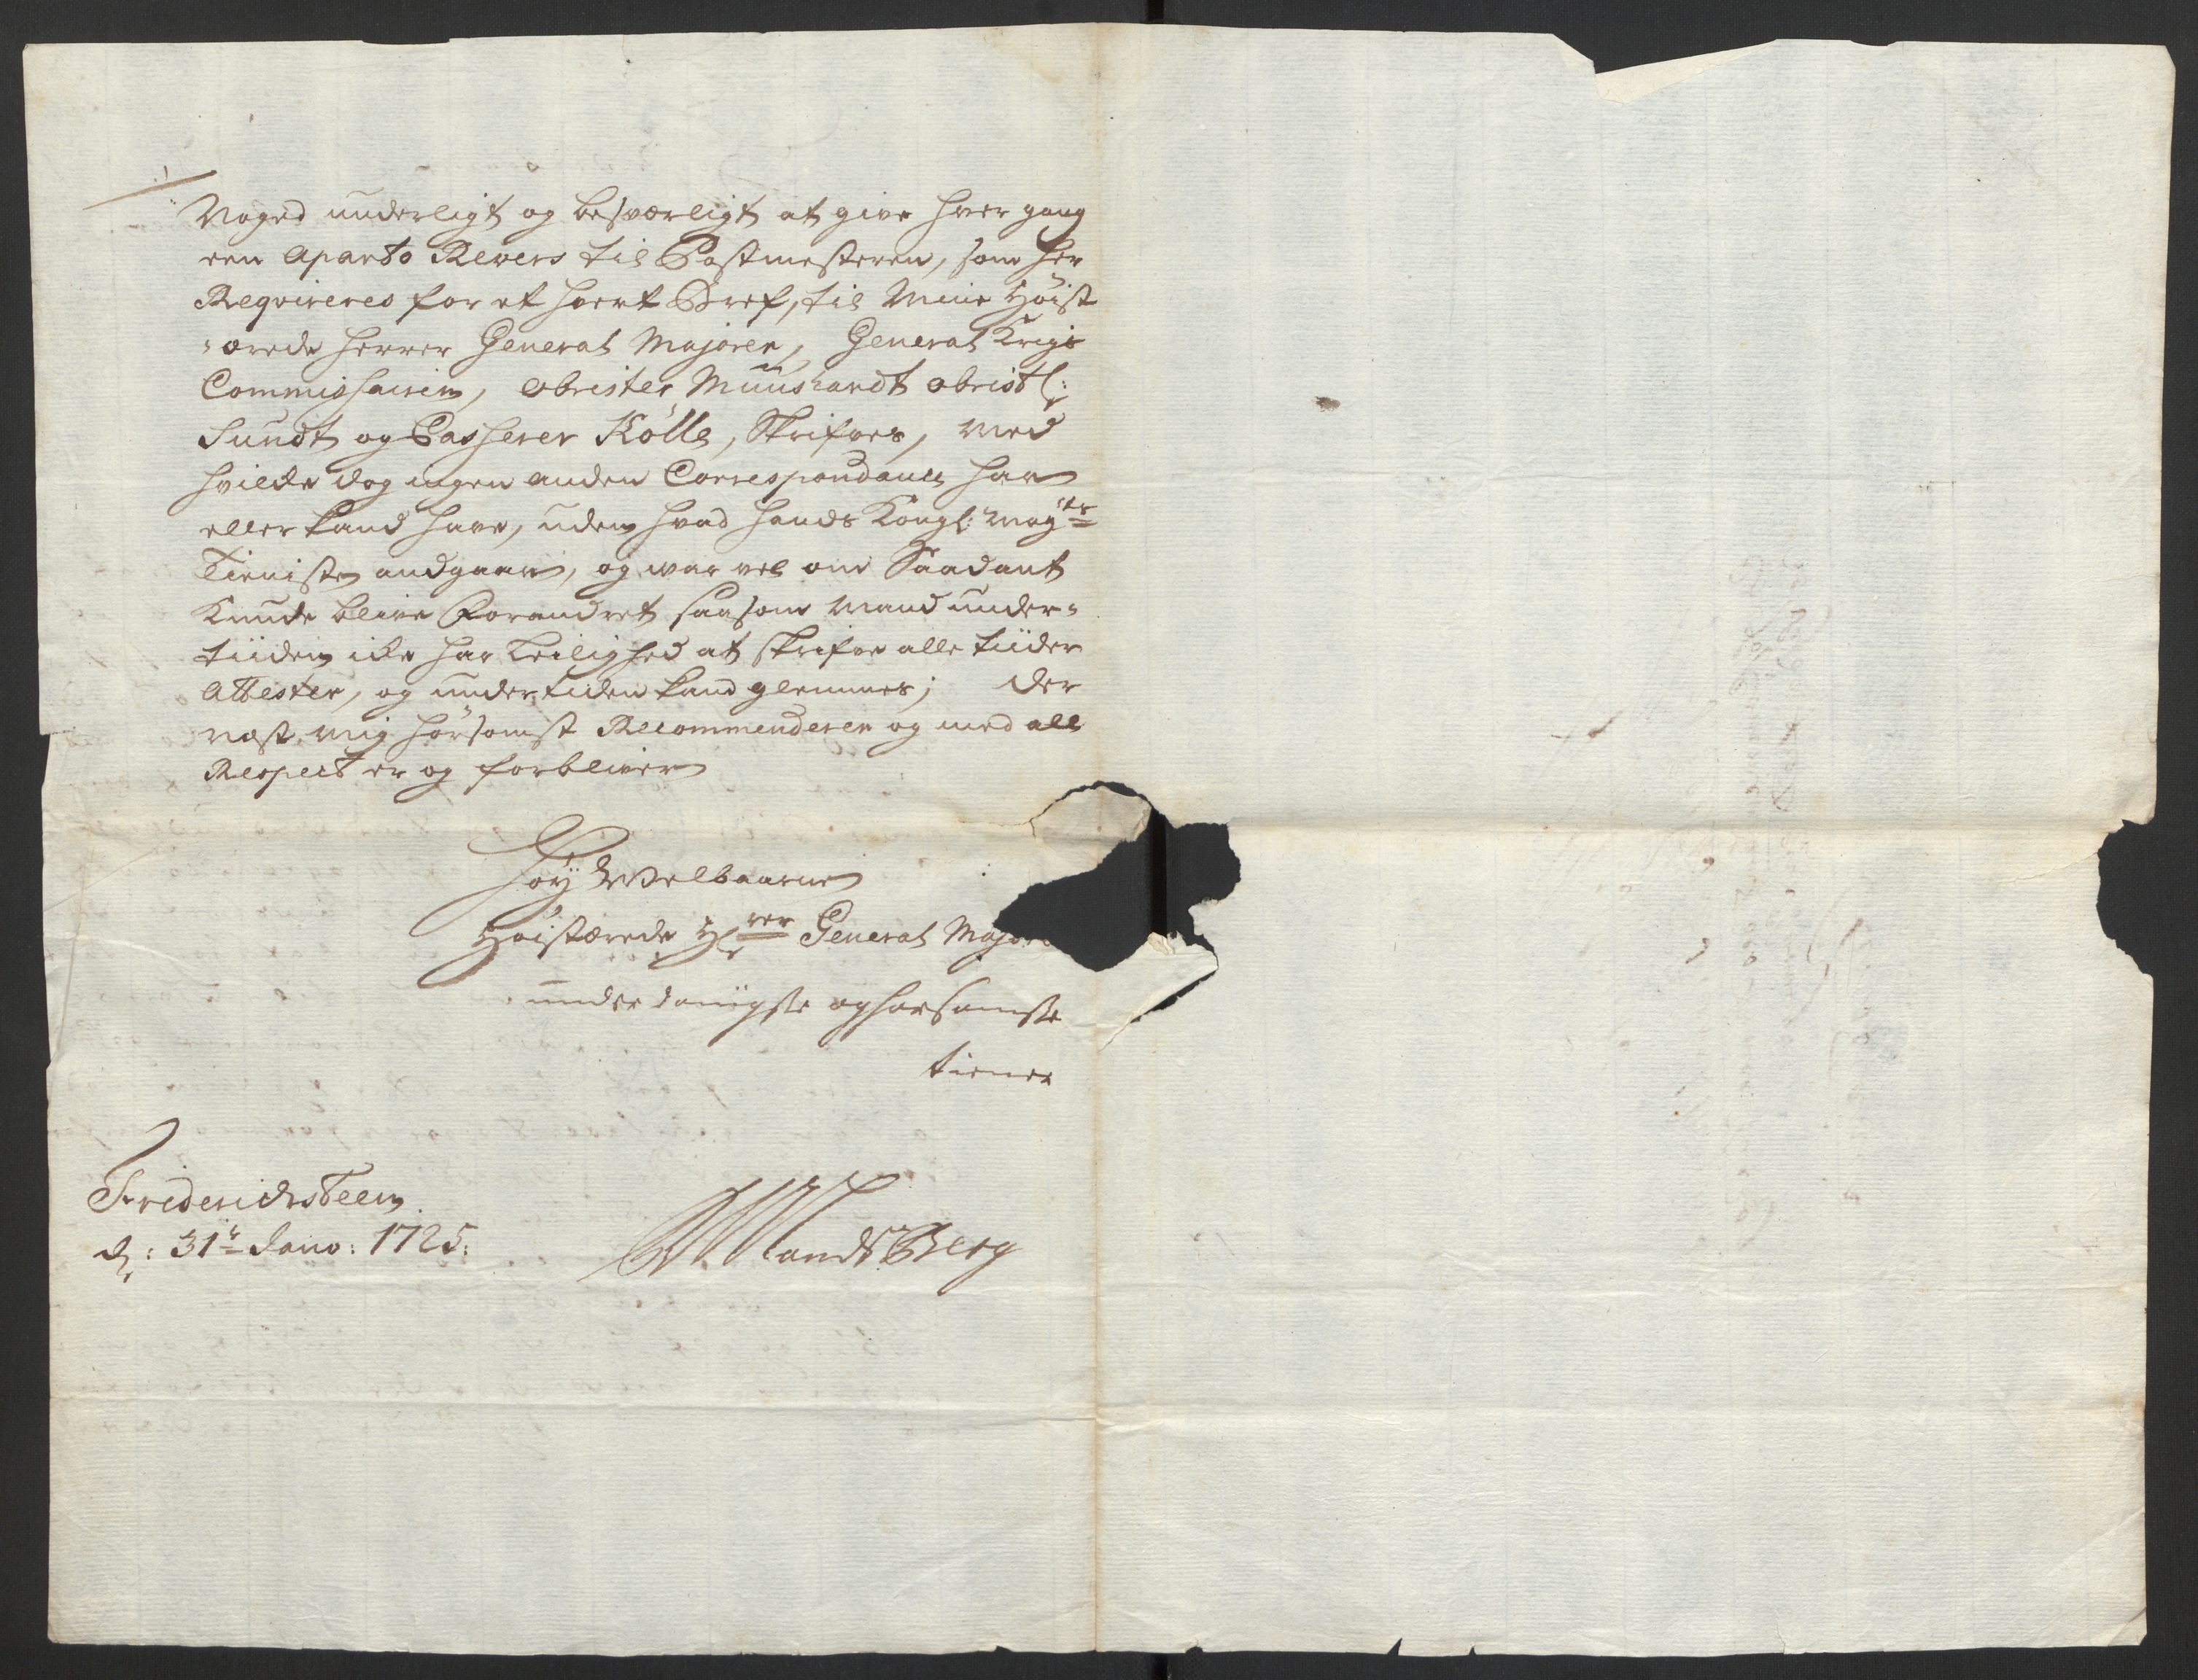 Noged underligt og besværligt at give hver gang
een Aparte Revers til Postmesteren, som her
Reqvireres for et hvert Bref, til Mine Høist
-ærede Herrer General Majoren, General Krigs
Commissairen, Obrister Muushardt Obristl:
Sundt og Casserer Kölle, Skrifves, med
hvilcke dog ingen anden Correspondance har
eller kand have, uden hvad hands Kongl: May.ts
Tieniste andgaaer, og war vel om Saadant
Kunde blive Forandret saasom mand under-
tiiden icke har Leilighed at skrifve alle tiider
Attester, og undertiden kand glemmes; der
næst mig hörsomst Recommenderer og med all
Respect er og forbliver
Höy Welbaarne
Höistærede Hr General Major
underdanigste og hørsomste
tiener
Fridericksteen
d: 31te Janv: 1725:
LandtBerg